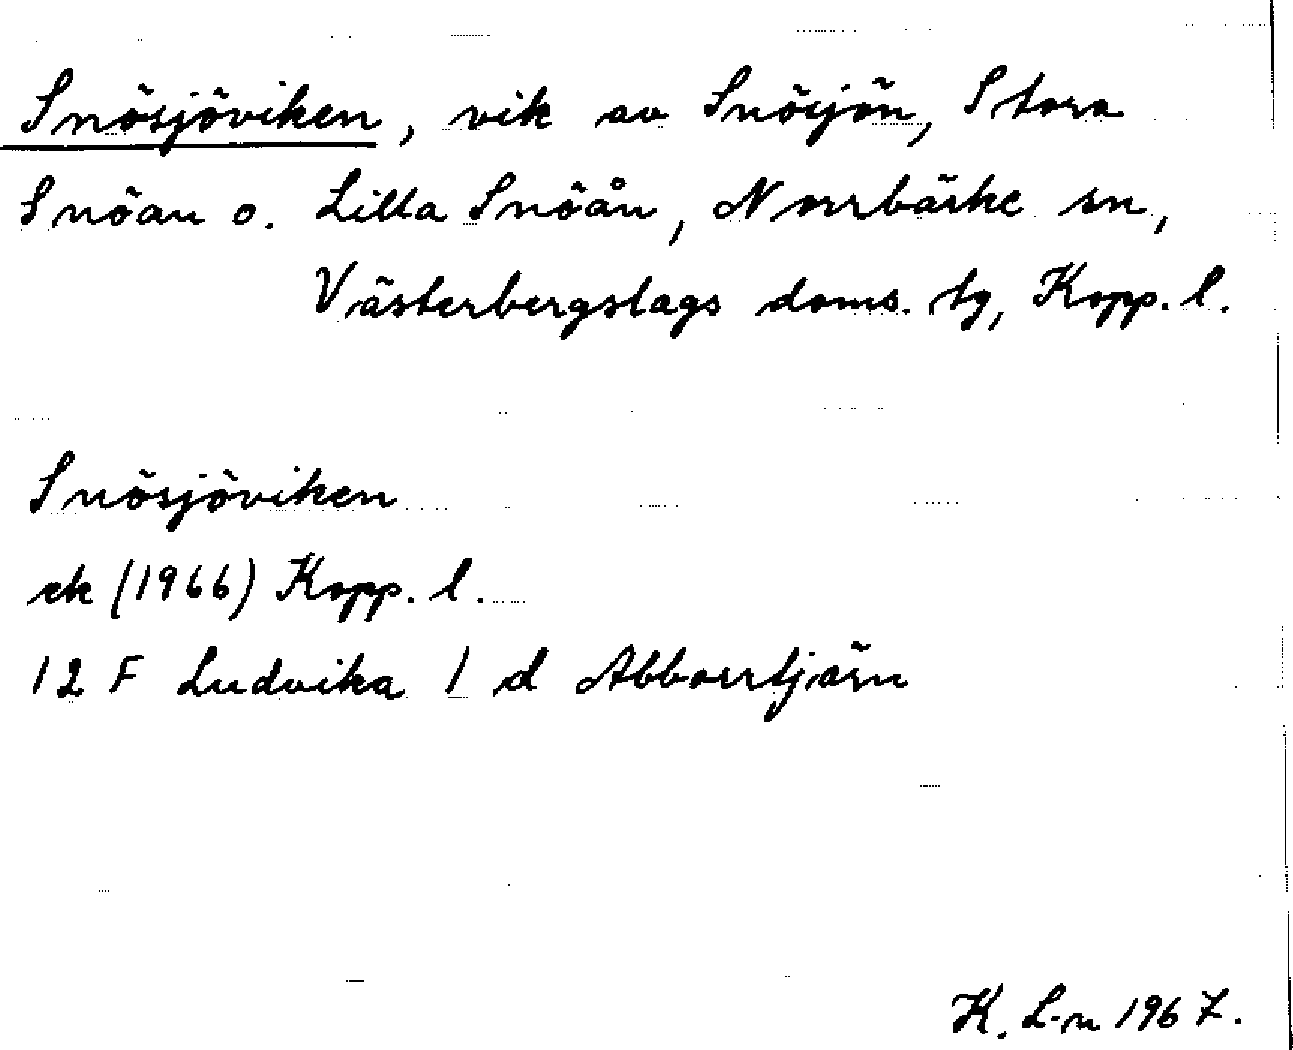 Snösjöviken, vik av Snösjön, Stora
Snöan o. Lilla Snöån, Norrbärke sn,
Västerbergslags doms. tg, Kopp. l.
Snösjöviken
ek (1966) Kopp. l.
12 F Ludvika 1 d Abborrtjärn
K. L-n 1967.